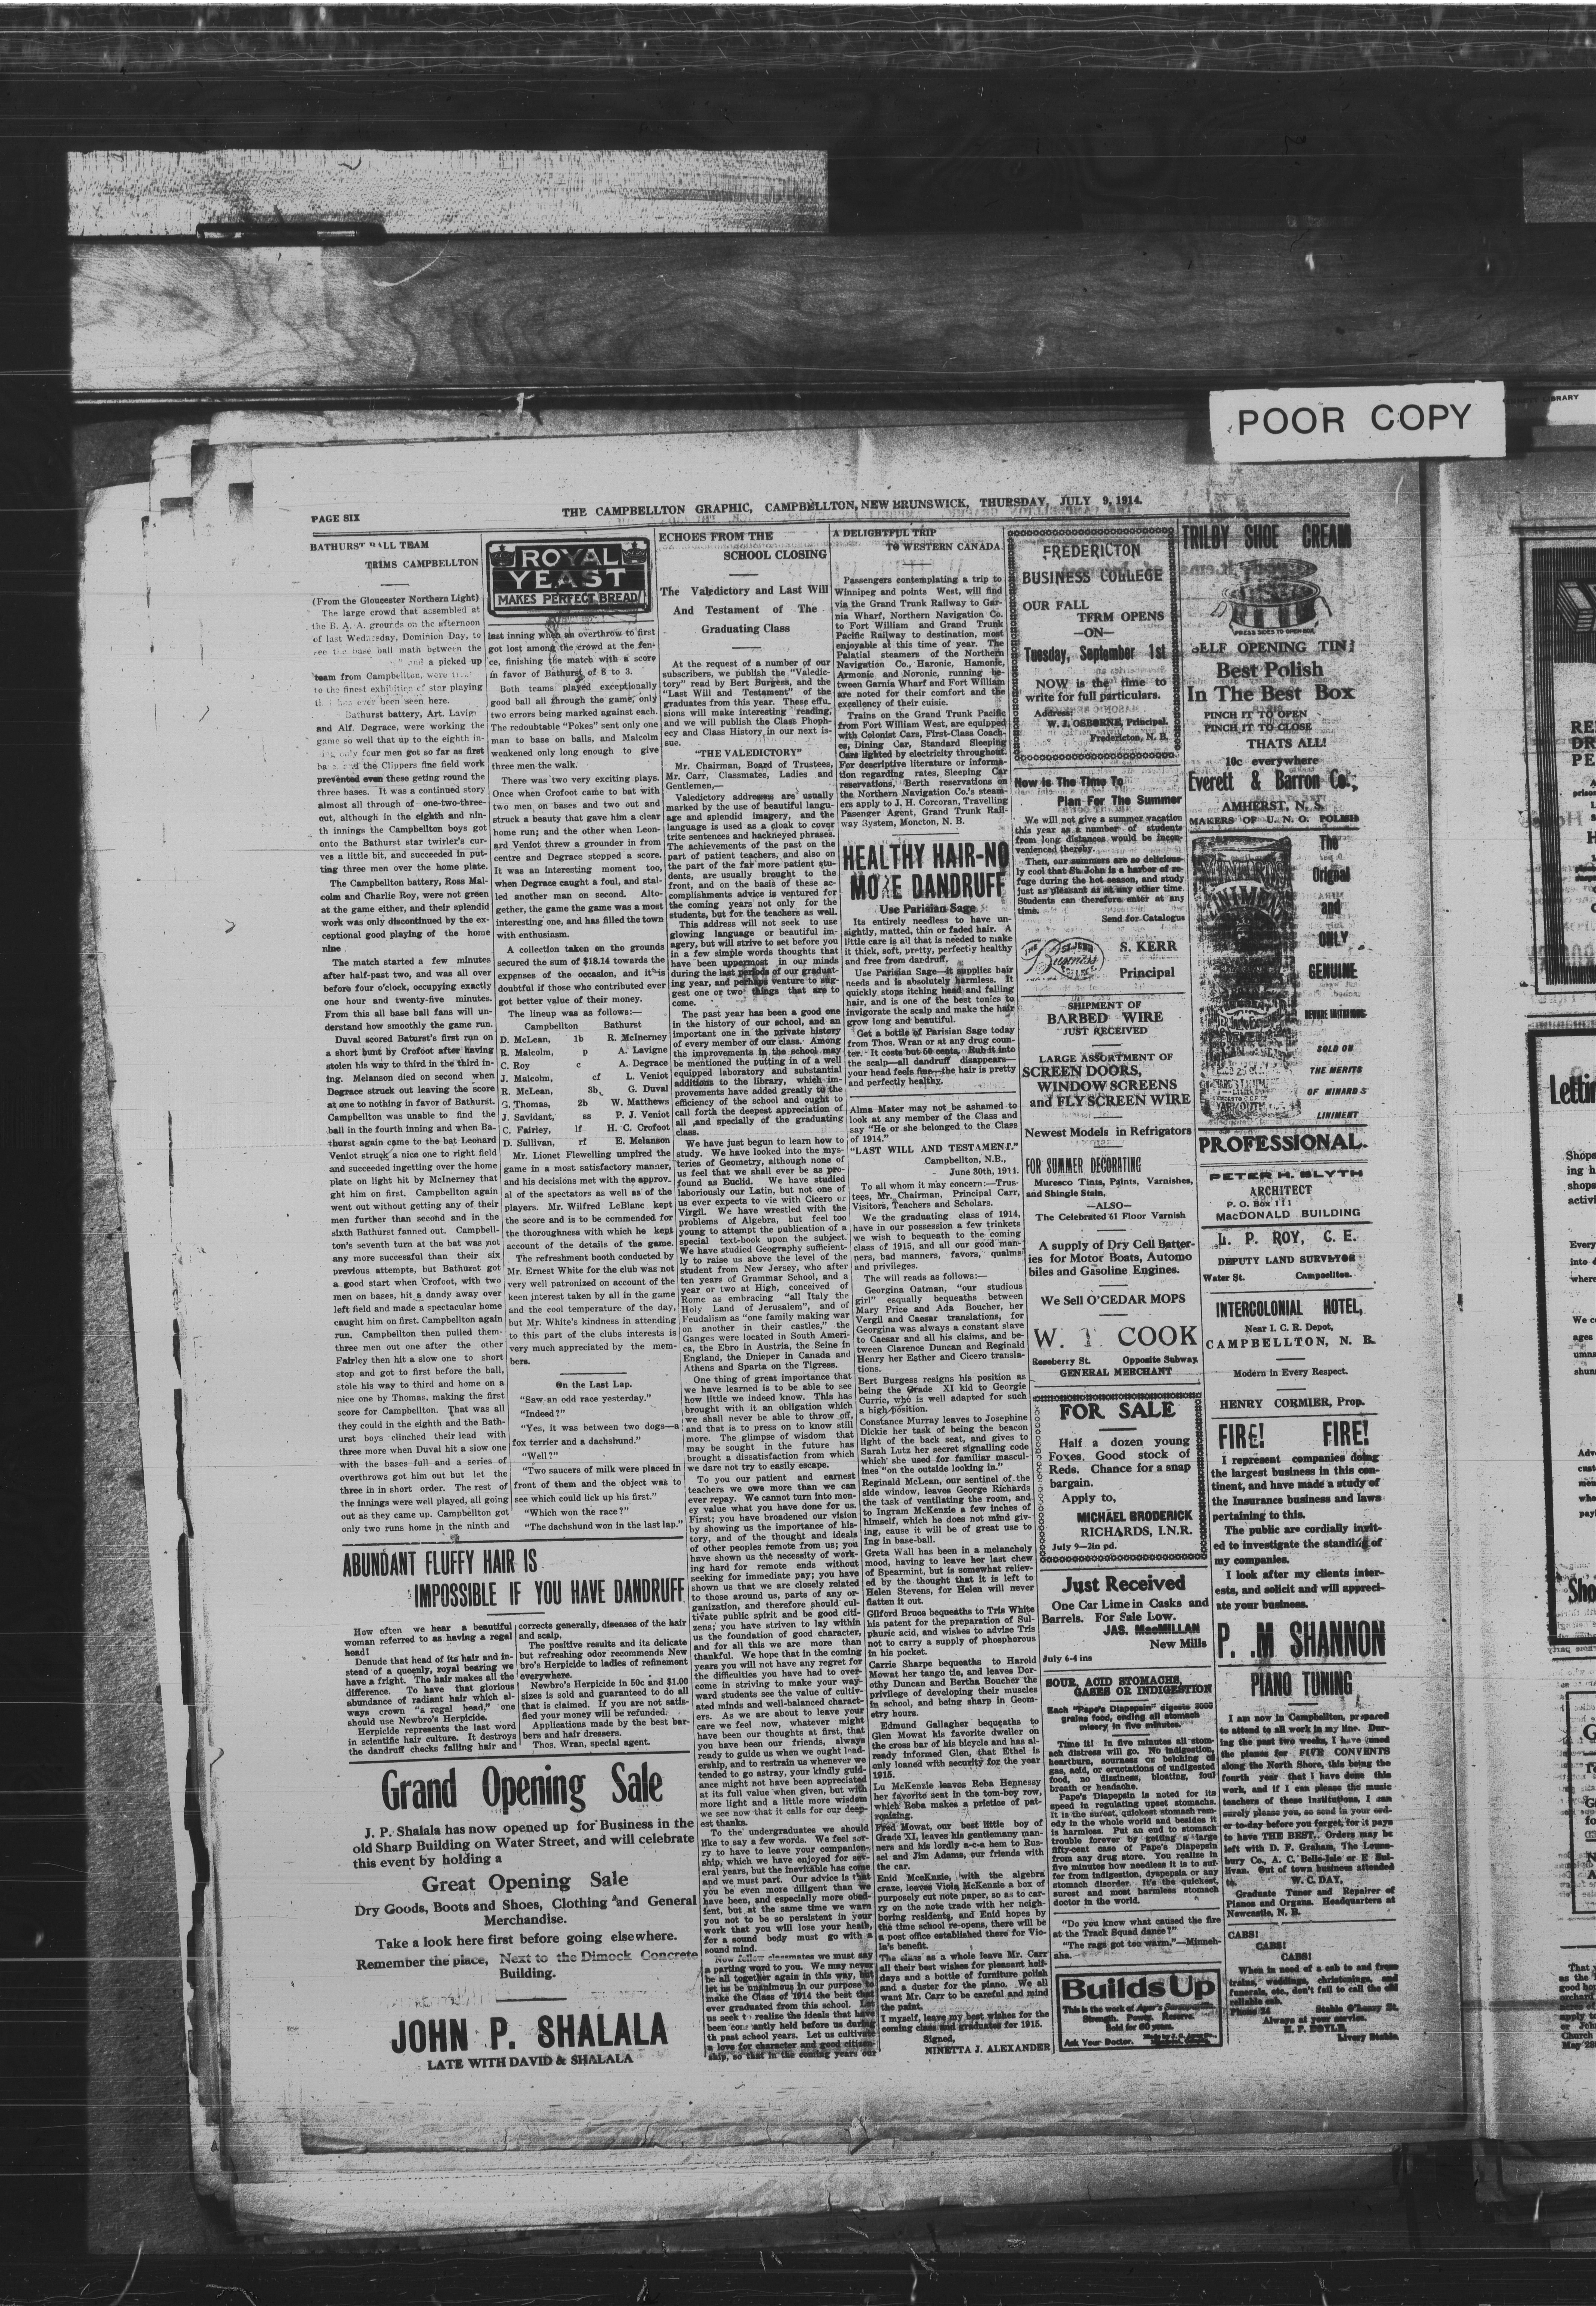 POOR COPY
LIBRARY
PAGE SIX
THE CAMPBELLTON GRAPHIC, CAMPBELLTON, NEW BRUNSWICK, THURSDAY, JULY 9, 1914.
BATHURST BALL TEAM
TRIMS CAMPBELLTON
(From the Gloucester Northern Light)
The large crowd that assembled at
the B. A. A. grounds on the afternoon
of last Wednesday, Dominion Day, to
see the base ball math between the
and a picked up
team from Campbellton, were
to the finest exhibition of star playing
ever been seen here.
Bathurst battery, Art. Lavign
and Alf. Degrace, were working the
game so well that up to the eighth in-
only four men got so far as first
and the Clippers fine field work
prevented even these geting round the
three bases. It was a continued story
almost all through of one-two-three-
out, although in the eighth and nin-
th innings the Campbellton boys got
onto the Bathurst star twirler's cur-
ves a little bit, and succeeded in put-
ting three men over the home plate.
The Campbellton battery, Ross Mal-
colm and Charlie Roy, were not green
at the game either, and their splendid
work was only discontinued by the ex-
ceptional good playing of the home
nine
The match started a few minutes
after half-past two, and was all over
before four o'clock, occupying exactly
one hour and twenty-five minutes.
From this all base ball fans will un-
derstand how smoothly the game run.
Duval scored Baturst's first run on
a short bunt by Crofoot after having
stolen his way to third in the third in-
ing. Melanson died on second when
Degrace struck out leaving the score
at one to nothing in favor of Bathurst.
Campbellton was unable to find the
ball in the fourth inning and when Ba-
thurst again came to the bat Leonard
Veniot struck a nice one to right field
and succeeded ingetting over the home
plate on light hit by McInerney that
ght him on first. Campbellton again
went out without getting any of their
men further than second and in the
sixth Bathurst fanned out. Campbell-
ton's seventh turn at the bat was not
any more successful than their six
previous attempts, but Bathurst got
a good start when Crofoot, with two
men on bases, hit a dandy away over
left field and made a spectacular home
caught him on first. Campbellton again
run. Campbellton then pulled them-
three men out one after the other
Fairley then hit a slow one to short
stop and got to first before the ball,
stole his way to third and home on a
nice one by Thomas, making the first
score for Campbellton. That was all
they could in the eighth and the Bath-
urst boys clinched their lead with
three more when Duval hit a slow one
with the bases full and a series of
overthrows got him out but let the
three in in short order. The rest of
the innings were well played, all going
out as they came up. Campbellton got
only two runs home in the ninth and
ROYAL
YEAST
MAKES PERFECT BREAD
last inning when an overthrow to first
got lost among the crowd at the fen-
ce, finishing the match with a score
in favor of Bathurst of 8 to 3.
Both teams played exceptionally
good ball all through the game, only
two errors being marked against each.
The redoubtable "Pokes" sent only one
man to base on balls, and Malcolm
weakened only long enough to give
three men the walk.
There was two very exciting plays.
Once when Crofoot came to bat with
two men on bases and two out and
struck a beauty that gave him a clear
home run; and the other when Leon-
ard Veniot threw a grounder from in
centre and Degrace stopped a score.
It was an interesting moment too,
when Degrace caught a foul, and stal-
led another man on second. Alto-
gether, the game the game was a most
interesting one, and has filled the town
with enthusiasm.
A collection taken on the grounds
secured the sum of $18.14 towards the
expenses of the occasion, and it is
doubtful if those who contributed ever
got better value of their money.
The lineup was as follows:—
Campbellton Bathurst
D. McLean, 1b R. McInerney
R. Malcolm, p A. Lavigne
C. Roy c A. Degrace
J. Malcolm, cf L. Veniot
R. McLean, 3b, G. Duval
G. Thomas, 2b W. Matthews
J. Savidant, ss P. J. Veniot
C. Fairley, lf H. C. Crofoot
D. Sullivan, rf E. Melanson
Mr. Lionel Flewelling umpired the
game in a most satisfactory manner,
and his decisions met with the approv.
al of the spectators as well as of the
players. Mr. Wilfred LeBlanc kept
the score and is to be commended for
the thoroughness with which he kept
account of the details of the game.
The refreshment booth conducted by
Mr. Ernest White for the club was not
very well patronized on account of the
keen interest taken by all in the game
and the cool temperature of the day,
but Mr. White's kindness in attending
to this part of the clubs interests is
very much appreciated by the mem-
bers.
On the Last Lap.
"Saw an odd race yesterday."
"Indeed?"
"Yes, it was between two dogs—a
fox terrier and a dachshund."
"Well?"
"Two saucers of milk were placed in
front of them and the object was to
see which could lick up his first."
"Which won the race?"
"The dachshund won in the last lap."
ABUNDANT FLUFFY HAIR IS
IMPOSSIBLE IF YOU HAVE DANDRUFF
How often we hear a beautiful
woman referred to as having a regal
head!
Denude that head of its hair and in-
stead of a queenly, royal bearing we
have a fright. The hair makes all the
difference. To have that glorious
abundance of radiant hair which al-
ways crown "a regal head," one
should use Newbro's Herpicide.
Herpicide represents the last word
in scientific hair culture. It destroys
the dandruff checks falling hair and
corrects generally, diseases of the hair
and scalp.
The positive results and its delicate
but refreshing odor recommends New
bro's Herpicide to ladies of refinement
everywhere.
Newbro's Herpicide in 50c and $1.00
sizes is sold and guaranteed to do all
that is claimed. If you are not satis-
fied your money will be refunded.
Applications made by the best bar-
bers and hair dressers.
Thos. Wran, special agent.
Grand Opening Sale
J. P. Shalala has now opened up for Business in the
old Sharp Building on Water Street, and will celebrate
this event by holding a
Great Opening Sale
Dry Goods, Boots and Shoes, Clothing and General
Merchandise.
Take a look here first before going elsewhere.
Remember the place, Next to the Dimock Concrete
Building.
JOHN P. SHALALA
LATE WITH DAVID & SHALALA
ECHOES FROM THE
SCHOOL CLOSING
The Valedictory and Last Will
And Testament of The
Graduating Class
At the request of a number of our
subscribers, we publish the "Valedic-
tory" read by Bert Burgess, and the
"Last Will and Testament" of the
graduates from this year. These effu-
sions will make interesting reading,
and we will publish the Class Phoph-
ecy and Class History in our next is-
sue.
"THE VALEDICTORY"
Mr. Chairman, Board of Trustees,
Mr. Carr, Classmates, Ladies and
Gentlemen,—
Valedictory addresses are usually
marked by the use of beautiful langu-
age and splendid imagery, and the
language is used as a cloak to cover
trite sentences and hackneyed phrases.
The achievements of the past on the
part of patient teachers, and also on
the part of the far more patient stu-
dents, are usually brought to the
front, and on the basis of these ac-
complishments advice is ventured for
the coming years not only for the
students, but for the teachers as well.
This address will not seek to use
glowing language or beautiful im-
agery, but will strive to set before you
in a few simple words thoughts that
have been uppermost in our minds
during the last periods of our graduat-
ing year, and perhaps venture to sug-
gest one or two things that are to
come.
The past year has been a good one
in the history of our school, and an
important one in the private history
of every member of our class. Among
the improvements in the school may
be mentioned the putting in of a well
equipped laboratory and substantial
additions to the library, which im-
provements have added greatly to the
efficiency of the school and ought to
call forth the deepest appreciation of
all ,and specially of the graduating
class.
We have just begun to learn how to
study. We have looked into the mys-
teries of Geometry, although none of
us feel that we shall ever be as pro-
found as Euclid. We have studied
laboriously our Latin, but not one of
us ever expects to vie with Cicero or
Virgil. We have wrestled with the
problems of Algebra, but feel too
young to attempt the publication of a
special text-book upon the subject.
We have studied Geography sufficient-
ly to raise us above the level of the
student from New Jersey, who after
ten years of Grammar School, and a
year or two at High, conceived of
Rome as embracing "all Italy the
Holy Land of Jerusalem", and of
Feudalism as "one family making war
on another in their castles," the
Ganges were located in South Ameri-
ca, the Ebro in Austria, the Seine in
England, the Dnieper in Canada and
Athens and Sparta on the Tigress.
One thing of great importance that
we have learned is to be able to see
how little we indeed know. This has
brought with it an obligation which
we shall never be able to throw off,
and that is to press on to know still
more. The glimpse of wisdom that
may be sought in the future has
brought a dissatisfaction from which
we dare not try to easily escape.
To you our patient and earnest
teachers we owe more than we can
ever repay. We cannot turn into mon-
ey value what you have done for us.
First; you have broadened our vision
by showing us the importance of his-
tory, and of the thought and ideals
of other peoples remote from us; you
have shown us the necessity of work-
ing hard for remote ends without
seeking for immediate pay; you have
shown us that we are closely related
to those around us, parts of any or-
ganization, and therefore should cul-
tivate public spirit and be good citi-
zens; you have striven to lay within
us the foundation of good character,
and for all this we are more than
thankful. We hope that in the coming
years you will not have any regret for
the difficulties you have had to over-
come in striving to make your way-
ward students see the value of cultiv-
ated minds and well-balanced charact-
ers. As we are about to leave your
care we feel now, whatever might
have been our thoughts at first, that
you have been our friends, always
ready to guide us when we ought lead-
ership, and to restrain us whenever we
tended to go astray, your kindly guid-
ance might not have been appreciated
at its full value when given, but with
more light and a little more wisdom
we see now that it calls for our deep-
est thanks.
To the undergraduates we should
like to say a few words. We feel sor-
ry to have to leave your companion-
ship, which we have enjoyed for sev-
eral years, but the inevitable has come
and we must part. Our advice is that
you be even more diligent than we
have been, and especially more obed-
ient, but at the same time we warn
you not to be so persistent in your
work that you will lose your healh,
for a sound body must go with a
sound mind.
Now fellow classmates we must say
a parting word to you. We may never
be all together again in this way, but
let us be unanimous in our purpose to
make the Class of 1914 the best that
ever graduated from this school. Let
us seek to realize the ideals that have
been constantly held before us during
th past school years. Let us cultivate
a love for character and good citizen-
ship, so that in the coming years our
A DELIGHTFUL TRIP
TO WESTERN CANADA
Passengers contemplating a trip to
Winnipeg and points West, will find
via the Grand Trunk Railway to Gar-
nia Wharf, Northern Navigation Co.
to Fort William and Grand Trunk
Pacific Railway to destination, most
enjoyable at this time of year. The
Palatial steamers of the Northern
Navigation Co., Haronic, Hamonic,
Armonic and Noronic, running be-
tween Garnia Wharf and Fort William
are noted for their comfort and the
excellency of their cuisie.
Trains on the Grand Trunk Pacific
from Fort William West, are equipped
with Colonist Cars, First-Class Coach-
es, Dining Car, Standard Sleeping
Cars lighted by electricity throughout.
For descriptive literature or informa-
tion regarding rates, Sleeping Car
reservations, Berth reservations on
the Northern Navigation Co.'s steam-
ers apply to J. H. Corcoran, Travelling
Pasenger Agent, Grand Trunk Rail-
way System, Moncton, N. B.
HEALTHY HAIR-NO
MORE DANDRUFF
Use Parisian Sage
Its entirely needless to have un-
sightly, matted, thin or faded hair. A
little care is all that is needed to make
it thick, soft, pretty, perfectly healthy
and free from dardruff.
Use Parisian Sage—it supplies hair
needs and is absolutely harmless. It
quickly stops itching head and falling
hair, and is one of the best tonics to
invigorate the scalp and make the hair
grow long and beautiful.
Get a bottle of Parisian Sage today
from Thos. Wran or at any drug coun-
ter. It costs but 50 cents. Rub it into
the scalp—all dandruff disappears—
your head feels fine—the hair is pretty
and perfectly healthy.
Alma Mater may not be ashamed to
look at any member of the Class and
say "He or she belonged to the Class
of 1914."
"LAST WILL AND TESTAMENT."
Campbellton, N.B.,
June 30th, 1911.
To all whom it may concern:—Trus-
tees, Mr. Chairman, Principal Carr,
Visitors, Teachers and Scholars.
We the graduating class of 1914,
have in our possession a few trinkets
we wish to bequeath to the coming
class of 1915, and all our good man-
ners, bad manners, favors, qualms
and privileges.
The will reads as follows:—
Georgina Oatman, "our studious
girl" equally bequeaths between
Mary Price and Ada Boucher, her
Vergil and Caesar translations, for
Georgina was always a constant slave
to Caesar and all his claims, and be-
tween Clarence Duncan and Reginald
Henry her Esther and Cicero transla-
tions.
Bert Burgess resigns his position as
being the Grade XI kid to Georgie
Currie, who is well adapted for such
a high position.
Constance Murray leaves to Josephine
Dickie her task of being the beacon
light of the back seat, and gives to
Sarah Lutz her secret signalling code
which she used for familiar mascul-
ines "on the outside looking in."
Reginald McLean, our sentinel of the
side window, leaves George Richards
the task of ventilating the room, and
to Ingram McKenzie a few inches of
himself, which he does not mind giv-
ing, cause it will be of great use to
Ing in base-ball.
Greta Wall has been in a melancholy
mood, having to leave her last chew
of Spearmint, but is somewhat reliev-
ed by the thought that it is left to
Helen Stevens, for Helen will never
flatten it out.
Gilford Bruce bequeaths to Tris White
his patent for the preparation of Sul-
phuric acid, and wishes to advise Tris
not to carry a supply of phosphorous
in his pocket.
Carrie Sharpe bequeaths to Harold
Mowat her tango tie, and leaves Dor-
othy Duncan and Bertha Boucher the
privilege of developing their muscles
in school, and being sharp in Geom-
etry hours.
Edmund Gallagher bequeaths to
Glen Mowat his favorite dweller on
the cross bar of his bicycle and has al-
ready informed Glen, that Ethel is
only loaned with security for the year
1915.
Lu McKenzie leaves Reba Hennessy
her favorite seat in the tom-boy row,
which Reba makes a prictice of pat-
ronizing.
Fred Mowat, our best little boy of
Grade XI, leaves his gentlemany man-
ners and his lordly a-c-a hem to Rus-
sel and Jim Adams, our friends with
the car.
Enid MceKnzie, with the algebra
craze, leaves Viola McKenzie a box of
purposely cut note paper, so as to car-
ry on the note trade with her neigh-
boring residents, and Enid hopes by
the time school re-opens, there will be
a post office established there for Vio-
la's benefit.
The class as a whole leave Mr. Carr
all their best wishes for pleasant holi-
days and a bottle of furniture polish
and a duster for the piano. We all
want Mr. Carr to be careful and mind
the paint.
I myself, leave my best wishes for the
coming class and graduates for 1915.
Signed,
NINETTA J. ALEXANDER
FREDERICTON
BUSINESS COLLEGE
OUR FALL
TERM OPENS
—ON—
Tuesday, September 1st
NOW is the time to
write for full particulars.
Address:
W. J. OSBORNE, Principal.
Fredericton, N. B.
Now is The Time To
Plan For The Summer
We will not give a summer vacation
this year as a number of students
from long distances would be incon-
venienced thereby.
Then, our summers are so delicious-
ly cool that St. John is a harbor of re-
fuge during the hot season, and study
just as pleasant as at any other time.
Students can therefore enter at any
time.
Send for Catalogus
THE ST. JOHN
Business
S. KERR
Principal
SHIPMENT OF
BARBED WIRE
JUST RECEIVED
LARGE ASSORTMENT OF
SCREEN DOORS,
WINDOW SCREENS
and FLY SCREEN WIRE
Newest Models in Refrigators
FOR SUMMER DECORATING
Muresco Tints, Paints, Varnishes,
and Shingle Stain,
—ALSO—
The Celebrated 61 Floor Varnish
A supply of Dry Cell Batter-
ies for Motor Boats, Automo
biles and Gasoline Engines.
We Sell O'CEDAR MOPS
W. COOK
Roseberry St. Opposite Subway.
GENERAL MERCHANT
FOR SALE
Half a dozen young
Foxes. Good stock of
Reds. Chance for a snap
bargain.
Apply to,
MICHAEL BRODERICK
RICHARDS, I.N.R.
July 9—2in pd.
Just Received
One Car Lime in Casks and
Barrels. For Sale Low.
JAS. MacMILLAN
New Mills
July 6-4 ins
SOUR, ACID STOMACHS,
GASES OR INDIGESTION
Each "Pape's Diapepsin" digests 3000
grains food, ending all stomach
misery in five minutes.
Time it! In five minutes all stom-
ach distress will go. No indigestion,
heartburn, sourness or belching of
gas, acid, or eructations of undigested
food, no dizziness, bloating, foul
breath or headache.
Pape's Diapepsin is noted for its
speed in regulating upset stomachs.
It is the surest, quickest stomach rem-
edy in the whole world and besides it
is harmless. Put an end to stomach
trouble forever by getting a large
fifty-cent case of Pape's Diapepsin
from any drug store. You realize in
five minutes how needless it is to suf-
fer from indigestion, dyspepsia or any
stomach disorder. It's the quickest,
surest and most harmless stomach
doctor in the world.
"Do you know what caused the fire
at the Track Squad dance?"
"The rags got too warm."—Minneh-
aha.
Builds Up
This is the work of Ayer's Sarsaparilla.
Strength. Power. Reserve.
Sold for 60 years.
Ask Your Doctor.
TRILBY SHOE CREAM
PRESS SIDES TO OPEN BOX
SELF OPENING TIN!
Best Polish
In The Best Box
PINCH IT TO OPEN
PINCH IT TO CLOSE
THATS ALL!
10c everywhere
Everett & Barron Co.,
AMHERST, N. S.
MAKERS OF U. N. O. POLISH
The
Orignal
and
ONLY
GENUINE
BEWARE IMITATIONS
SOLD ON
THE MERITS
OF MINARD'S
LINIMENT
PROFESSIONAL.
PETER H. BLYTH
ARCHITECT
P. O. Box 111
MacDONALD BUILDING
L. P. ROY, C. E.
DEPUTY LAND SURVEYOR
Water St. Campbellton.
INTERCOLONIAL HOTEL,
Near I. C. R. Depot,
CAMPBELLTON, N. B.
Modern in Every Respect.
HENRY CORMIER, Prop.
FIRE! FIRE!
I represent companies doing
the largest business in this con-
tinent, and have made a study of
the Insurance business and laws
pertaining to this.
The public are cordially invit-
ed to investigate the standing of
my companies.
I look after my clients inter-
ests, and solicit and will appreci-
ate your business.
P. .M SHANNON
PIANO TUNING
I am now in Campbellton, prepared
to attend to all work in my line. Dur-
ing the past two weeks, I have tuned
the pianos for FIVE CONVENTS
along the North Shore, this being the
fourth year that I have done this
work, and if I can please the music
teachers of these institutions, I can
surely please you, so send in your ord-
er to-day before you forget, for it pays
to have THE BEST. Orders may be
left with D. F. Graham, The Louns-
bury Co., A. C. Belle-Isle or E Sul-
livan. Out of town business attended
to.
W. C. DAY,
Graduate Tuner and Repairer of
Pianos and Organs. Headquarters at
Newcastle, N. B.
CABS!
CABS!
CABS!
When in need of a cab to and from
trains, weddings, christenings, and
funerals, etc., don't fail to call the old
reliable cab.
Always at your service.
H. F. DOYLE,
Livery Stable